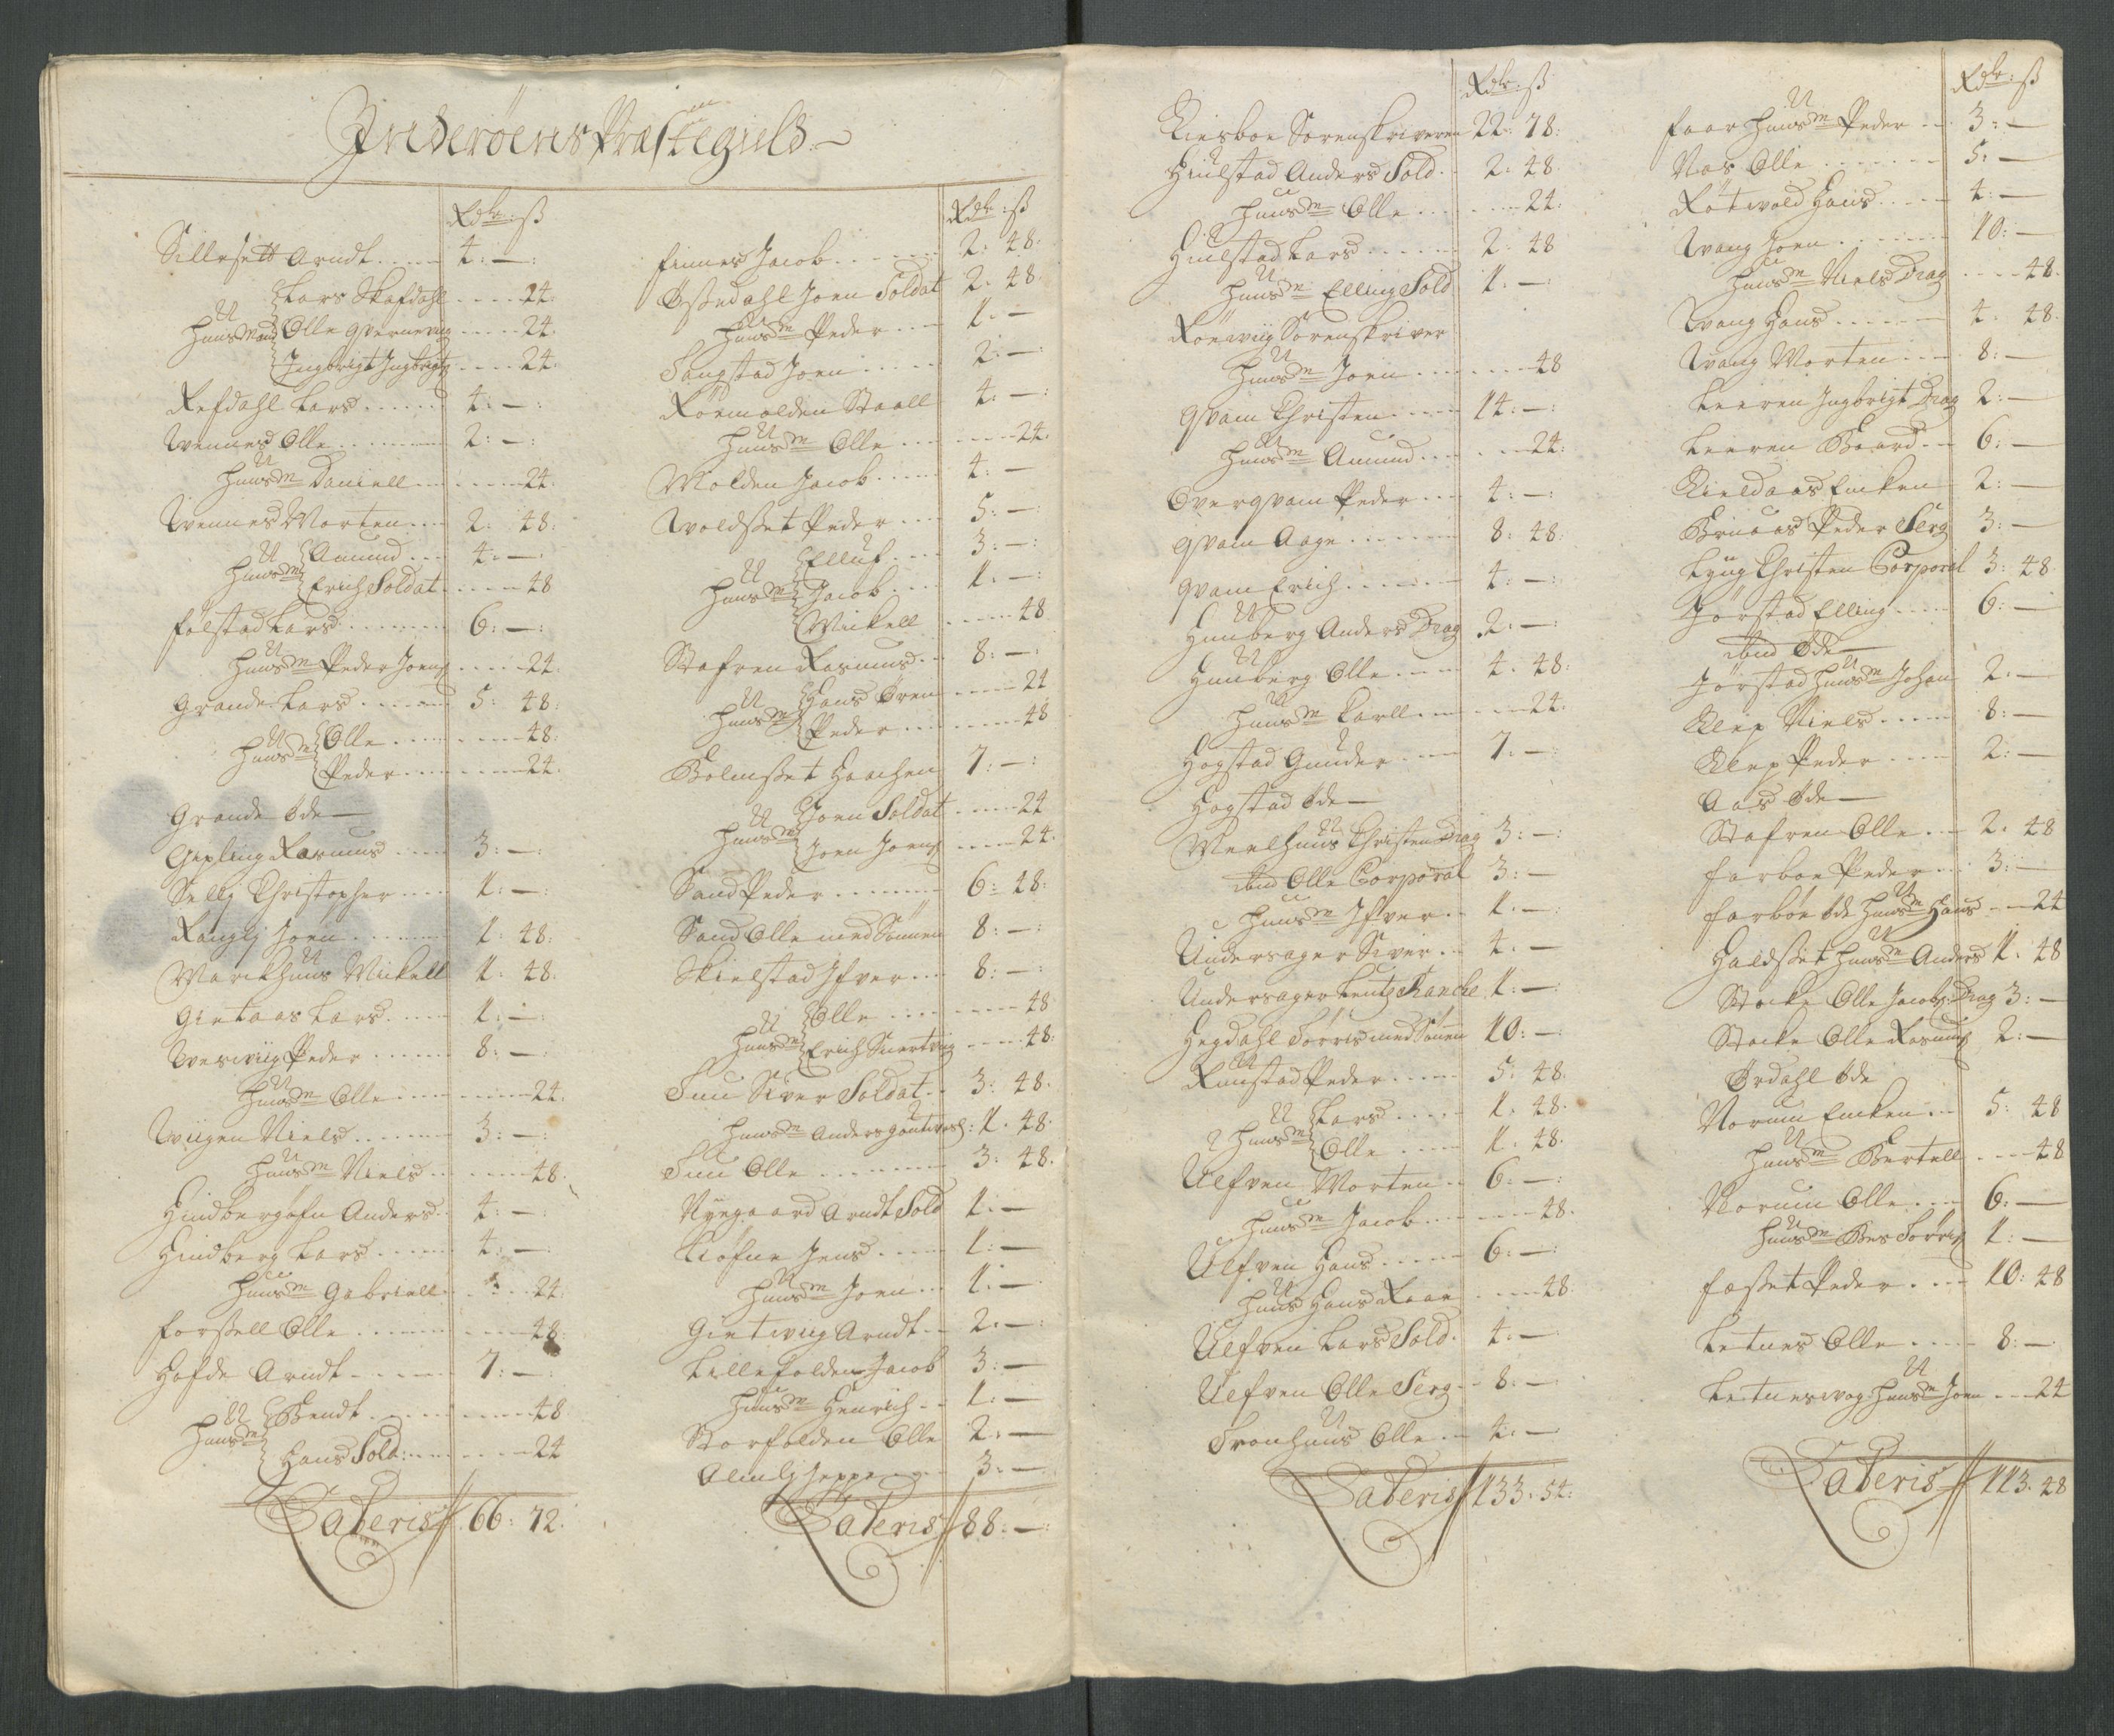 Inderöens Præstegield
Rdr: ß
Sillesett Arndt 4: —:
Lars Skafdahl 24:
Huusmænd Olle qvernevng 24:
Ingbrigt Ingbrigts 24:
Refdahl Lars 4: —:
Wennes Olle 2: —:
Huusm Daniell 24:
Wennes Morten 2: 48:
Huusm Amund 4: —:
Erich Soldat 48
Folstad Lars 6: —:
Huusm Peder Joens 24:
Grande Lars 5: 48:
Huusm Olle 48:
Peder 24:
Grande öde —
Gipling Rasmus 3: —:
Selly Christopher 1: —:
Rangly Joen 1: 48:
Marckhuus Mickell 1: 48:
Gietaas Lars 1: —:
Weswiig Peder 8: —:
Huusm Olle 24:
Wiigen Niels 3: —:
Huusm Niels 48:
Hindbergöfn Anders 4: —:
Hindberg Lars 4: —:
Huusm Gabriell 24:
Forssell Olle 48:
Hafde Arndt 7: —:
Huusm Bendt 48
Hans Sold: 24
Lateris 66: 72:
Rdr: ß
Finnes Jacob 2: 48:
Össedahl Joen Soldat 2: 48:
Huusm Peder 1: —
Sangstad Joen 2: —:
Röemolden Staall 4: —:
Huusm Olle 24:
Molden Jacob 4: —
Woldsset Peder 5: —:
Elluf 3: —:
Huusm Jacob 1: —:
Mickell 48
Stafren Rasmus 8: —:
Huusm Hans Ören 24
Peder 48
Holmsset Haachen 7: —:
Huusm Joen Soldat 24
Joen Joens 24:
Sand Peder 6: 48:
Sand Olle med Sönnen 8: —:
Skielstad Ifver 8: —:
Huusm Olle 48
Erich Snertvig 48:
Suu Siver Soldat 3: 48:
Huusm Anders 1: 48:
Suu Olle 3: 48:
Nyegaard Arndt Sold 1: —
Liöfne Jens 1: —
Huusm Joen 1: —
Gietwiig Arndt 2: —:
Lillefolden Jacob 3: —
Huusm Henrich 1: —
Storfolden Olle 2: —
Almly Jeppe 3: —
Lateris 88: —:
Rdr: ß
Kiesboe Sorenskriveren 22: 78:
Hiulstad Anders Sold 2: 48:
Huusm Olle 24:
Hiulstad Lars 2: 48
Huusm Elling Sold 1: —:
Röewiig Sorenskriver
Huusm Joen 48
qvam Christen 14: —:
Huusm Amund 24:
Overqvam Peder 4: —:
qvam Aage 8: 48:
qvam Erich 4: —:
Hunberg Anders Drag 2: —:
Hunberg Olle 4: 48:
Huusm Carll 24:
Hogstad Gunder 7: —:
Hogstad öde —
Meelhuus Christen Drag 3: —:
ibid Olle Corporal 3: —
Huusm Ifver 1: —:
Undersager Siver 4: —
Undersager Leutz Rancke 1: —:
Hegdahl Torris med Sönnen 10: —:
Ramstad Peder 5: 48:
Huusm Lars 1: 48:
Olle 1: 48:
Ulfven Morten 6: —:
Huusm Jacob 48:
Ulfven Hans 6: —:
Huus Hans Raae 48:
Ulfven Lars Sold: 4: —
Ulfven Olle Serg 8: —:
Tronhuus Olle 4: —
Lateris 133: 54:
Rdr: ß
Faar Huusm Peder 3: —
Nos Olle 5: —
Rötwold Hans 4: —
Wang Joen 10: —
Huusm Niels Drag 48:
Wang Hans 4: 48:
Wang Morten 8: —
Leeren Ingbrigt Drag 2: —
Leeren Baard 6: —
Kieldaas Encken 2: —
Bruaas Peder Serg 3: —
Lyng Christen Corporal 3: 48
Jörstad Elling 6: —
ibid öde —
Jörstad Huusm Johan 2: —
Klep Niels 8: —
Klep Peder 2: —
Aas öde —
Stafren Olle 2: 48
Farboe Peder 3: —
Farboe öde Huusm Hans 24
Haldsset Huusm Anders 1: 48
Stocke Olle Jacobs: Drag 3: —
Stocke Olle Rasmus 2: —
Ördahl öde
Norum Encken 5: 48
Huusm Bertell 48
Norum Olle 6: —
Huusm Torris 1: —
Fosset Peder 10: 48
Letnes Olle 8: —
Letneswog Huusm Joen 24
Lateris 113: 48